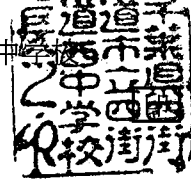 千葉県四街
道市立四街
道西中学校
長之印